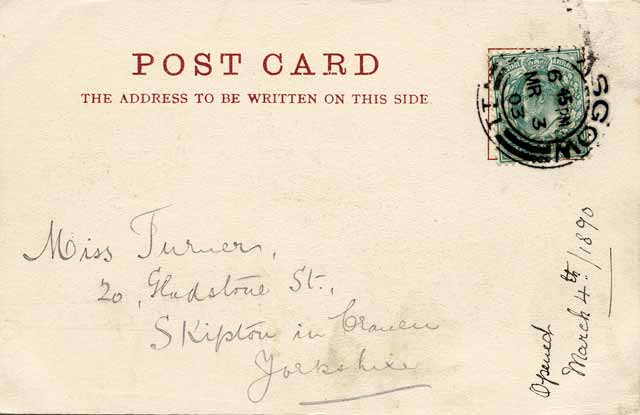 POST CARD
THE ADDRESS TO BE WRITTEN ON THIS SIDE.
SGOW
6 45 PM
MR 3
03
11
Miss Turner,
20, Gladstone St.,
Skipton in Craven
Yorkshire
Opened
March 4th/1890